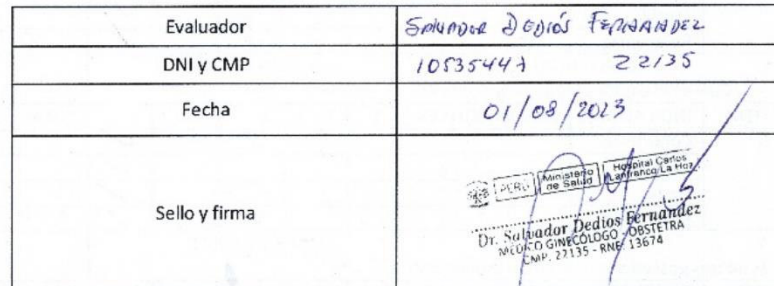 Evaluador SALVADOR DEDIOS FERNANDEZ
DNI y CMP 10535447 22135
Fecha 01/08/2023
Sello y firma
PERÚ Ministerio de Salud Hospital Carlos Lanfranco La Hoz
Dr. Salvador Dedios Fernandez
MÉDICO GINECÓLOGO - OBSTETRA
CMP. 22135 - RNE. 13674